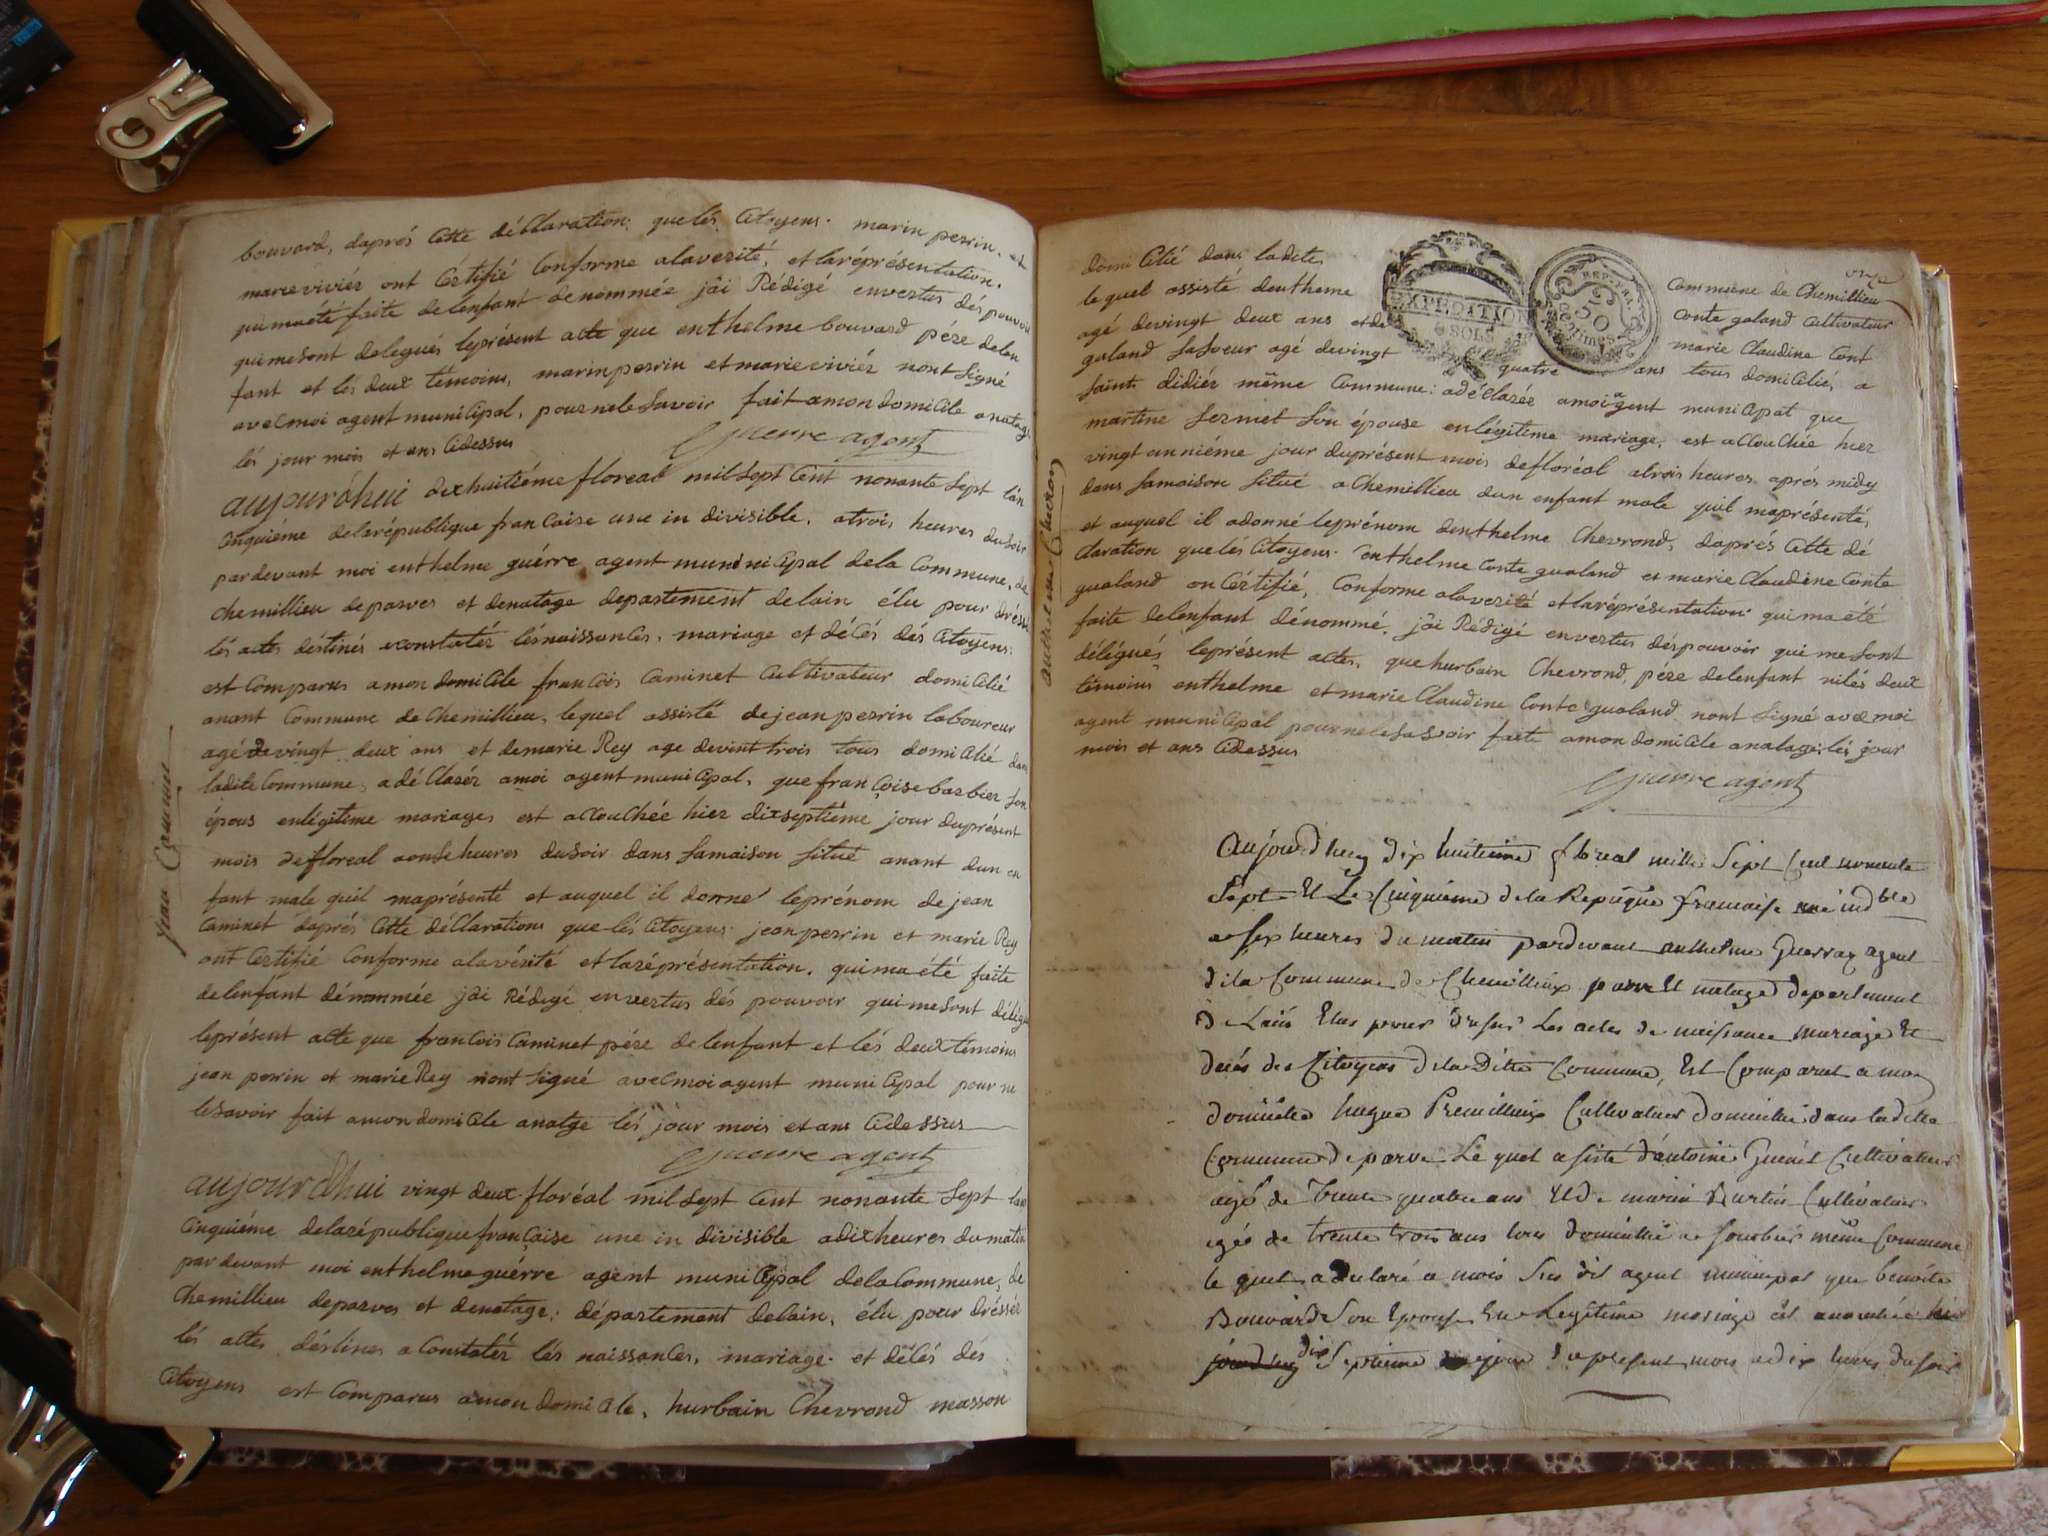 bouvard, daprés Cette déClaration. que lés Citoyens. marin perrin. et
marie viviér ont Cértifié Conforme alaverité, et laréprésentation.
qui maété faite delenfant denommée jai Rédigé envertus dés pouvoir
qui mesont delegués leprésent acte que enthelme bouvard pére delen
fant et lés deux témoins, marin perrin et marie viviér nont Signé
avec moi agent muniCipal, pour nele Savoir fait amon domiCile anatag.
lés jour mois et ans Cidessus
Guerre agent
aujourdhui dixhuitiéme floreal mil Sept Cent nonante Sept lan
Cinquiéme delarépublique franCaise une in divisible, atrois heures dusoir
pardevant moi enthelme guérre agent muniniCipal dela Commune, de
Chemillieu deparves et denatage departement delain élu pour dréssé
lés actes destinés aconstatér lésnaissanCes, mariage et déCés dés Citoyens.
est Comparus amon domiCile franCois Caminet Cultivateur domiCilié
anant Commune de Chemillieu, lequel assisté dejean perrin laboureur
agé devingt deux ans et demarie Rey age devint trois tous domiCilié dans
ladite Commune, adéClarér amoi agent muniCipal, que françoise barbier Son
épous enlégitime mariage, est aCCouChée hier dixseptiéme jour duprésent
mois defloreal aonse heures dusoir dans Samaison Situé anant dun en
fant male quil maprésenté et auquel il donné leprénom de jean
Caminet daprés Cette déClarations que lés Citoyens jean perrin et marie Rey
ont Certifié Conforme alavérité et laréprésentation. qui ma été faite
delenfant dénommée jai Rédigé envertus dés pouvoir qui mesont délégu
leprésent acte que franCois Caminet pére delenfant et lés deux témoins
jean perrin et marie Rey nont Signé avec moi agent muniCipal pour ne
lesavoir fait amon domiCile anatge lés jour mois et ans Cidessus
Guerre agent
aujourdhui vingt deux floréal mil Sept Cent nonante Sept lan
Cinquiéme delarépublique française une in divisible adix heures dumatin
pardevant moi enthelme guérre agent muniCipal delaCommune, de
Chemillieu deparves et denatage: département delain, élu pour dréssér
lés actes déstinés aConstatér lés naissanCes, mariage et déCés dés
Citoyens est Comparus amon domiCile, hurbain Chevrond masson
Jean Caminet
domiCilié dans ladite Commune de Chemillieu
lequel assisté dentheme Conte galand Cultivateur
agé devingt deux ans et de marie Claudine Cont
galand Sasoeur agé devingt quatre ans tous domiCilié, a
Saint didiér même Commune: adéClarée amoi agent muniCipal que
martine Sermet Son épouse enlégitime mariage, est aCCouChée hier
vingt unniéme jour duprésent mois defloréal atrois heures aprés midy
dans Samaison Situé aChemillieu dun enfant male quil maprésenté,
et auquel il adonné leprénom denthelme Chevrond, daprés Cette dé
Claration que lés Citoyens. enthelme Conte gualand et marie Claudine Conte
gualand on Cértifié, Conforme alaverité et laréprésentation qui ma été
faite delenfant dénommé, jai Rédigé envertus déspouvoir qui mesont
délégués leprésent actes, que hurbain Chevrond, pére delenfant nilés deux
témoins enthelme et marie Claudine Conte gualand nont Signé avec moi
agent muniCipal pour nele Savoir faite amon domiCile anatage lés jour
mois et ans Cidessus
Guerre agent
EXPEDITION
8 SOLS
REP. FRA.
50
Centimes
anthelme Cheuron
Aujourdhuy dix huitieme floreal mille Sept Cent nonante
Sept Et Le Cinquieme de la Repuqiue francaise une ind ble
a Six heures du matin pardevant anthelme Guerray agent
de la Commune de Chemillieux parve Et natage departement
de Lain Elus pour dresser Les actes de naissance mariage Et
deces des Citoyens de la Ditte Commune, Est Comparut a mon
domicille hugue Premillieux Cultivateur domicillie dans ladite
Commune de parve Le quel a sisté d'antoine Guenet Cultivateur
agé de trente quatre ans Et de marin Burtin Cultivateur
agée de trente trois ans tous domicillié a Sourbier même Commune
le quel a declaré a mois Sus dit agent municipal que benoite
Bouvard Son Epouse En Legitime mariage est acouchée hier
jourdhuy dix Septieme jour du present mois a dix heures du soir